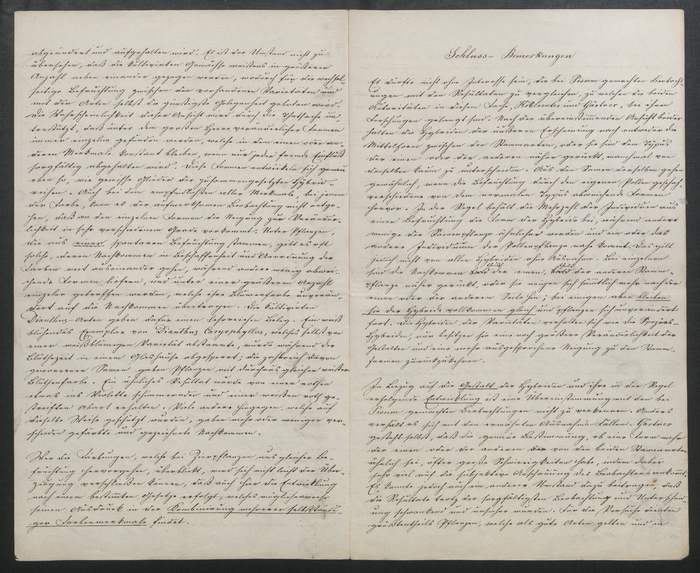 abgeändert und aufgehalten wird. Es ist der Umstand nicht zu
übersehen, daß die kultivirten Gewächse meistens in größerer
Anzahl neben einander gezogen werden, wodurch für die wechsel-
seitige Befruchtung zwischen den vorhandenen Varietäten und
mit den Arten selbst die günstigste Gelegenheit geboten wird.
Die Wahrscheinlichkeit dieser Ansicht wird durch die Thatsache un-
terstützt, daß unter dem großen Heere veränderlicher Formen
immer einzelne gefunden werden, welche in dem einen oder an-
deren Merkmale constant bleiben, wenn nur jeder fremde Einfluß
sorgfältig abgehalten wird. Diese Formen entwickeln sich genau
eben so, wie gewisse Glieder der zusammengesetzten Hybrid-
reihen. Auch bei dem empfindlichsten aller Merkmale, bei jenem
der Farbe, kann es der aufmerksamen Beobachtung nicht entge-
hen, daß an den einzelnen Formen die Neigung zur Veränder-
lichkeit in sehr verschiedenem Grade vorkommt. Unter Pflanzen,
die aus einer spontanen Befruchtung stammen, gibt es oft
solche, deren Nachkommen in Beschaffenheit und Anordnung der
Farben weit auseinander gehen, während andere wenig abwei-
chende Formen liefern, und unter einer größeren Anzahl
einzelne getroffen werden, welche ihre Blumenfarbe unverän-
dert auf die Nachkommen übertragen. Die kultivirten
Dianthus-Arten geben dafür einen lehrreichen Beleg. Ein weiß
blühendes Exemplar von Dianthus Caryophyllus, welches selbst von
einer weißblumigen Varietät abstammte, wurde während der
Blüthezeit in einem Glashause abgesperrt; die zahlreich davon
gewonnenen Samen gaben Pflanzen mit durchaus gleicher weißer
Blüthenfarbe. Ein ähnliches Resultat wurde von einer rothen
etwas ins Violette schimmernden und einer weißen roth ge-
streiften Abart erhalten. Viele andere hingegen, welche auf
dieselbe Weise geschützt wurden, gaben mehr oder weniger ver-
schieden gefärbte und gezeichnete Nachkommen.
Wer die Färbungen, welche bei Zierpflanzen aus gleicher Be-
fruchtung hervorgehen, überblickt, wird sich nicht leicht der Über-
zeugung verschließen können, daß auch hier die Entwicklung
nach einem bestimmten Gesetze erfolgt, welches möglicherweise
seinen Ausdruck in der Kombinirung mehrerer selbstständi-
ger Farbenmerkmale findet.
Schluss-Bemerkungen
Es dürfte nicht ohne Interesse sein, die bei Pisum gemachten Beobach-
tungen mit den Resultaten zu vergleichen, zu welchen die beiden
Autoritäten in diesem Fache, Kölreuter und Gärtner, bei ihren
Forschungen gelangt sind. Nach der übereinstimmenden Ansicht beider
halten die Hybriden der äußeren Erscheinung nach entweder die
Mittelform zwischen den Stammarten, oder sie sind dem Typus
der einen oder der anderen näher gerückt, manchmal von
derselben kaum zu unterscheiden. Aus den Samen derselben gehen
gewöhnlich, wenn die Befruchtung durch den eigenen Pollen geschah,
verschiedene von dem normalen Typus abweichende Formen
hervor. In der Regel behält die Mehrzahl der Individuen aus
einer Befruchtung die Form der Hybride bei, während andere
wenige der Samenpflanze ähnlicher werden und ein oder das
andere Individuum der Pollenpflanze nahe kommt. Das gilt
jedoch nicht von allen Hybriden ohne Ausnahme. Bei einzelnen
sind die Nachkommen theils der einen, theils der anderen Stamm-
pflanze näher gerückt, oder sie neigen sich sämmtlich mehr nach der
einen oder der anderen Seite hin; bei einigen aber bleiben
sie der Hybride vollkommen gleich und pflanzen sich unverändert
fort. Die Hybriden der Varietäten verhalten sich wie die Species-
Hybriden, nur besitzen sie eine noch größere Veränderlichkeit der
Gestalten und eine mehr ausgesprochene Neigung zu den Stamm-
formen zurückzukehren.
In Bezug auf die Gestalt der Hybriden und ihre in der Regel
erfolgende Entwicklung ist eine Übereinstimmung mit den bei
Pisum gemachten Beobachtungen nicht zu verkennen. Anders
verhält es sich mit den erwähnten Ausnahmsfällen. Gärtner
gesteht selbst, daß die genaue Bestimmung, ob eine Form mehr
der einen oder der anderen von den beiden Stammarten
ähnlich sei, öfter große Schwierigkeiten habe, indem dabei
sehr viel auf die subjektive Anschauung des Beobachters ankommt.
Es konnte jedoch auch ein anderer Umstand dazu beitragen, daß
die Resultate trotz der sorgfältigsten Beobachtung und Unterschei-
dung schwankend und unsicher wurden. Für die Versuche dienten
größtentheils Pflanzen, welche als gute Arten gelten und in